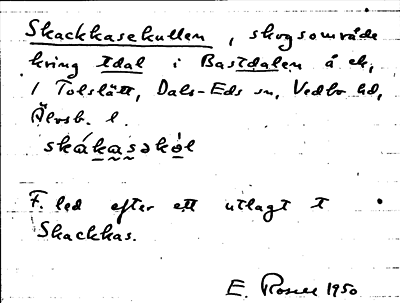 Skackkasekullen, skogsområde
kring tdal i Bastdalen å ek,
1 Tolslätt, Dals-Eds sn, Vedbo hd,
Älvsb. l.
skákasəkòl
F. led efter ett utlagt t
Skackkas.
E. Rosell 1950